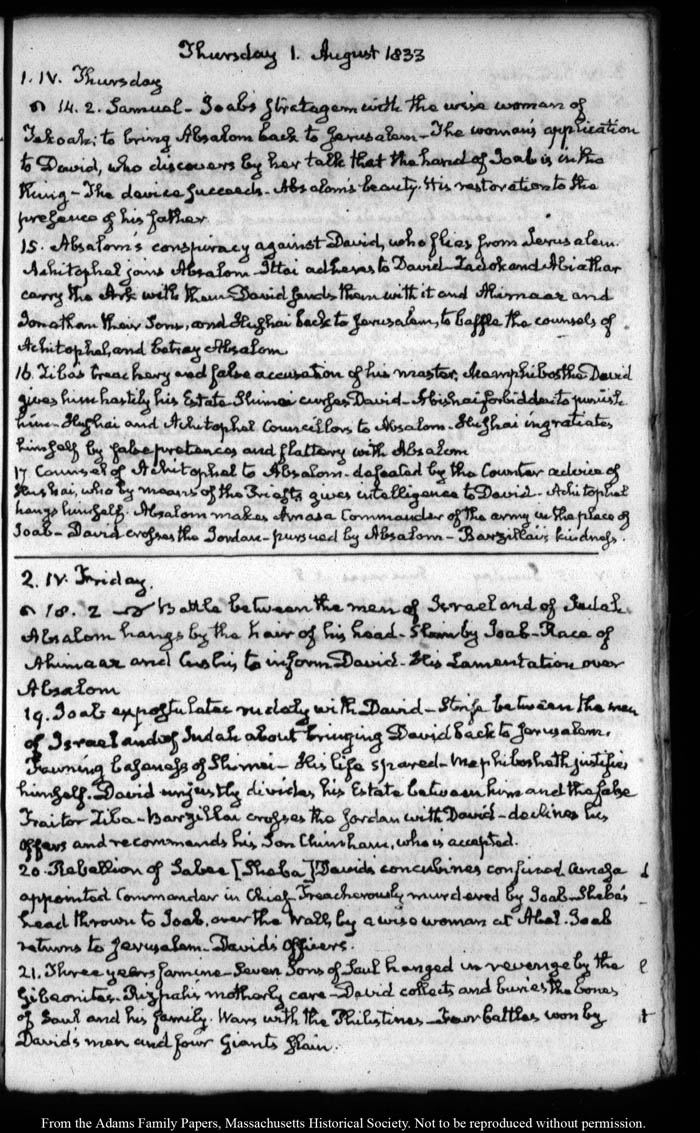 Thursday 1. August 1833
1. IV. Thursday
14. 2. Samuel - Joab's stratagem with the wise woman of
Tekoah; to bring Absalom back to Jerusalem - The woman's application
to David, who discovers by her talk that the hand of Joab is in the
thing - The device succeeds - Absalom's beauty. His restoration to the
presence of his father.
15. Absalom's conspiracy against David, who flies from Jerusalem.
Achitophel joins Absalom - Ittai adheres to David - Zadok and Abiathar
carry the Ark with them David sends them with it and Ahimaaz and
Jonathan their Sons, and Hushai back to Jerusalem, to baffle the counsels of
Achitophel, and betray Absalom
16. Ziba's treachery and false accusation of his master, David
gives him hastily his Estate - Shimei curses David - Abishai forbidden to punish
him - Hushai and Achitophel Councillors to Absalom - Hushai ingratiates
himself by false pretences and flattery with Absalom
17 Counsel of Achitophel to Absalom - defeated by the Counter advice of
Hushai, who by means of the Priests gives intelligence to David - Achitophel
hangs himself. Absalom makes Amasa Commander of the army in the place of
Joab - David crosses the Jordan - pursued by Absalom - Barzillai's kindness.
2. IV. Friday.
18. 2 Battle between the men of Israel and of Judah
Absalom hangs by the hair of his head - Slain by Joab - Race of
Ahimaaz and Cushi, to inform David - His Lamentation over
Absalom
19. Joab expostulates rudely with David - Strife between the men
of Israel and of Judah about bringing David back to Jerusalem.
Fawning baseness of Shimei - His life spared - Mephibosheth justifies
himself. David unjustly divides his Estate between him and the false
Traitor Ziba - Barzillai crosses the Jordan with David - declines his
offers and recommends his Son Chimham, who is accepted.
20. Rebellion of Sabee [Sheba] David's concubines confined Amasa
appointed Commander in Chief - Treacherously murdered by Joab - Sheba's
head thrown to Joab, over the Wall, by a wise woman at Abel. Joab
returns to Jerusalem - David's Officers.
21. Three years famine - Seven Sons of Saul hanged in revenge by the
Gibeonites. Rizpah's motherly care - David collects and buries the bones
of Saul and his family. Wars with the Philistines - Four battles won by
David's men and four Giants slain.
From the Adams Family Papers, Massachusetts Historical Society. Not to be reproduced without permission.